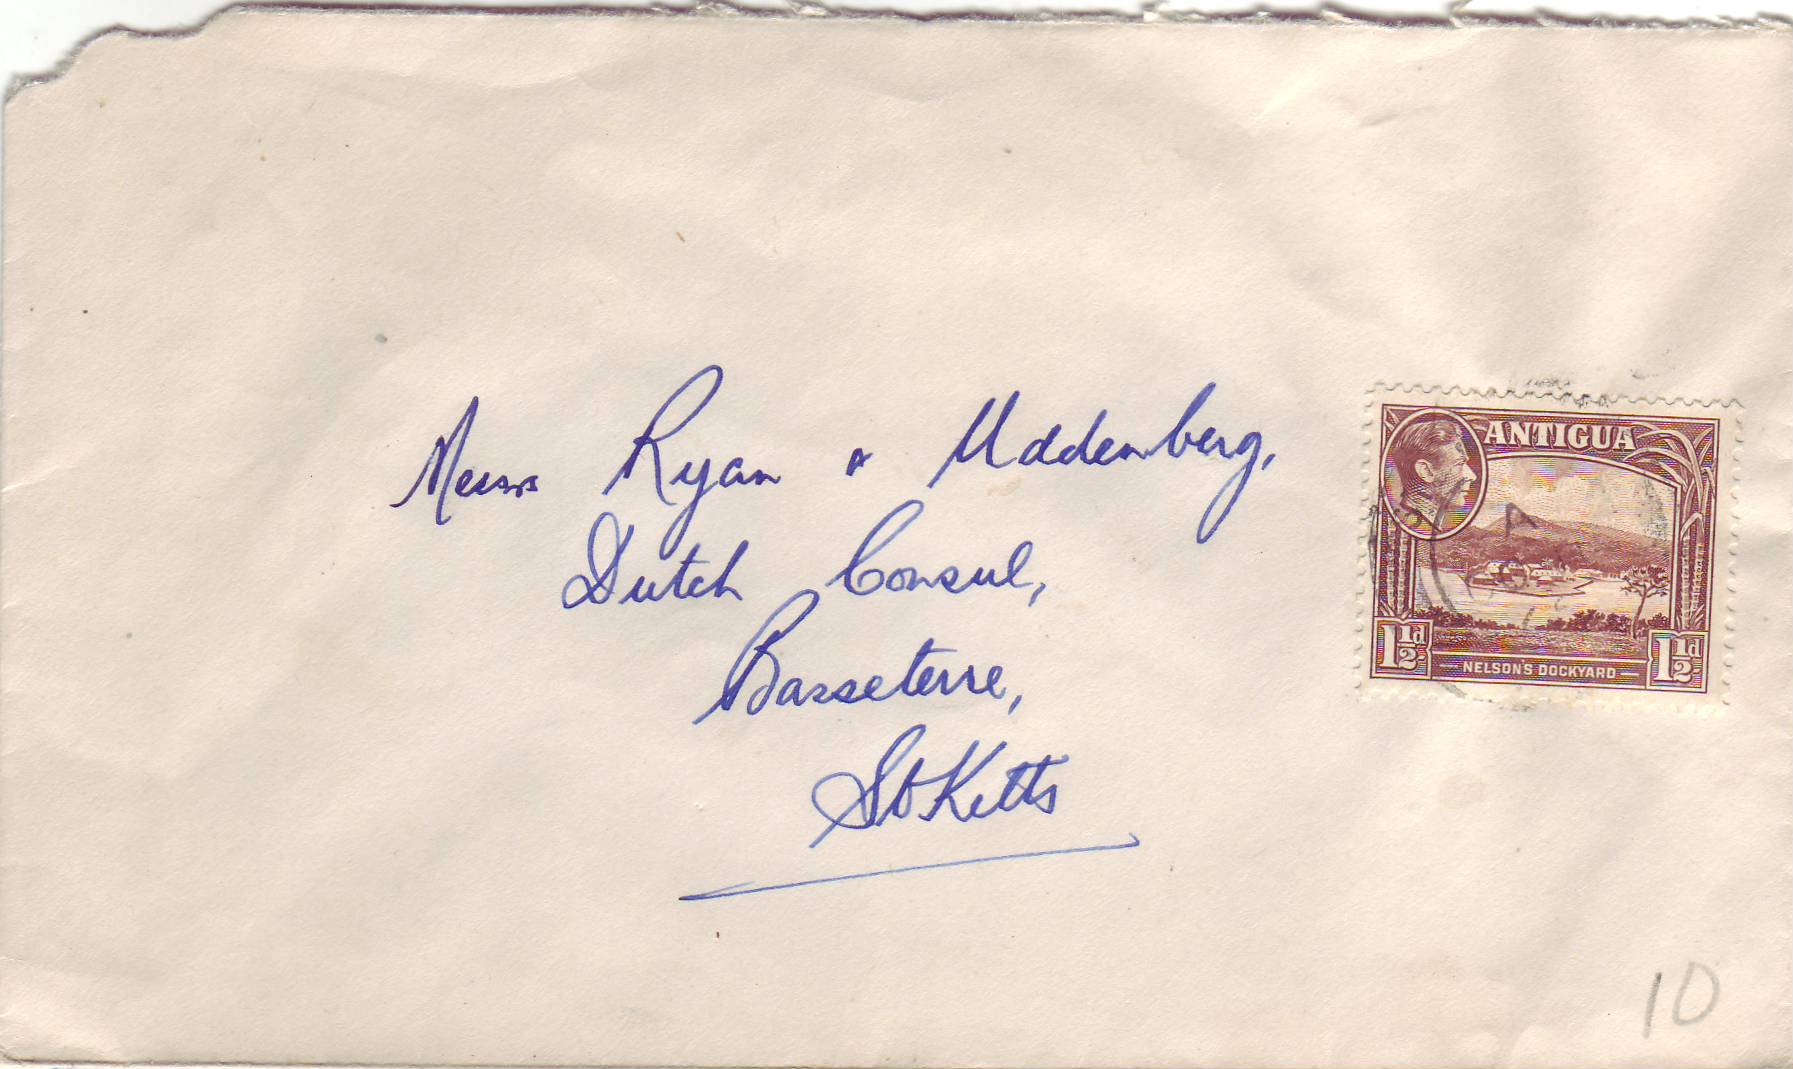 Messrs Ryan & Uddenberg,
Dutch Consul,
Basseterre,
St Kitts
ANTIGUA
1½d
NELSON'S DOCKYARD
1½d
10